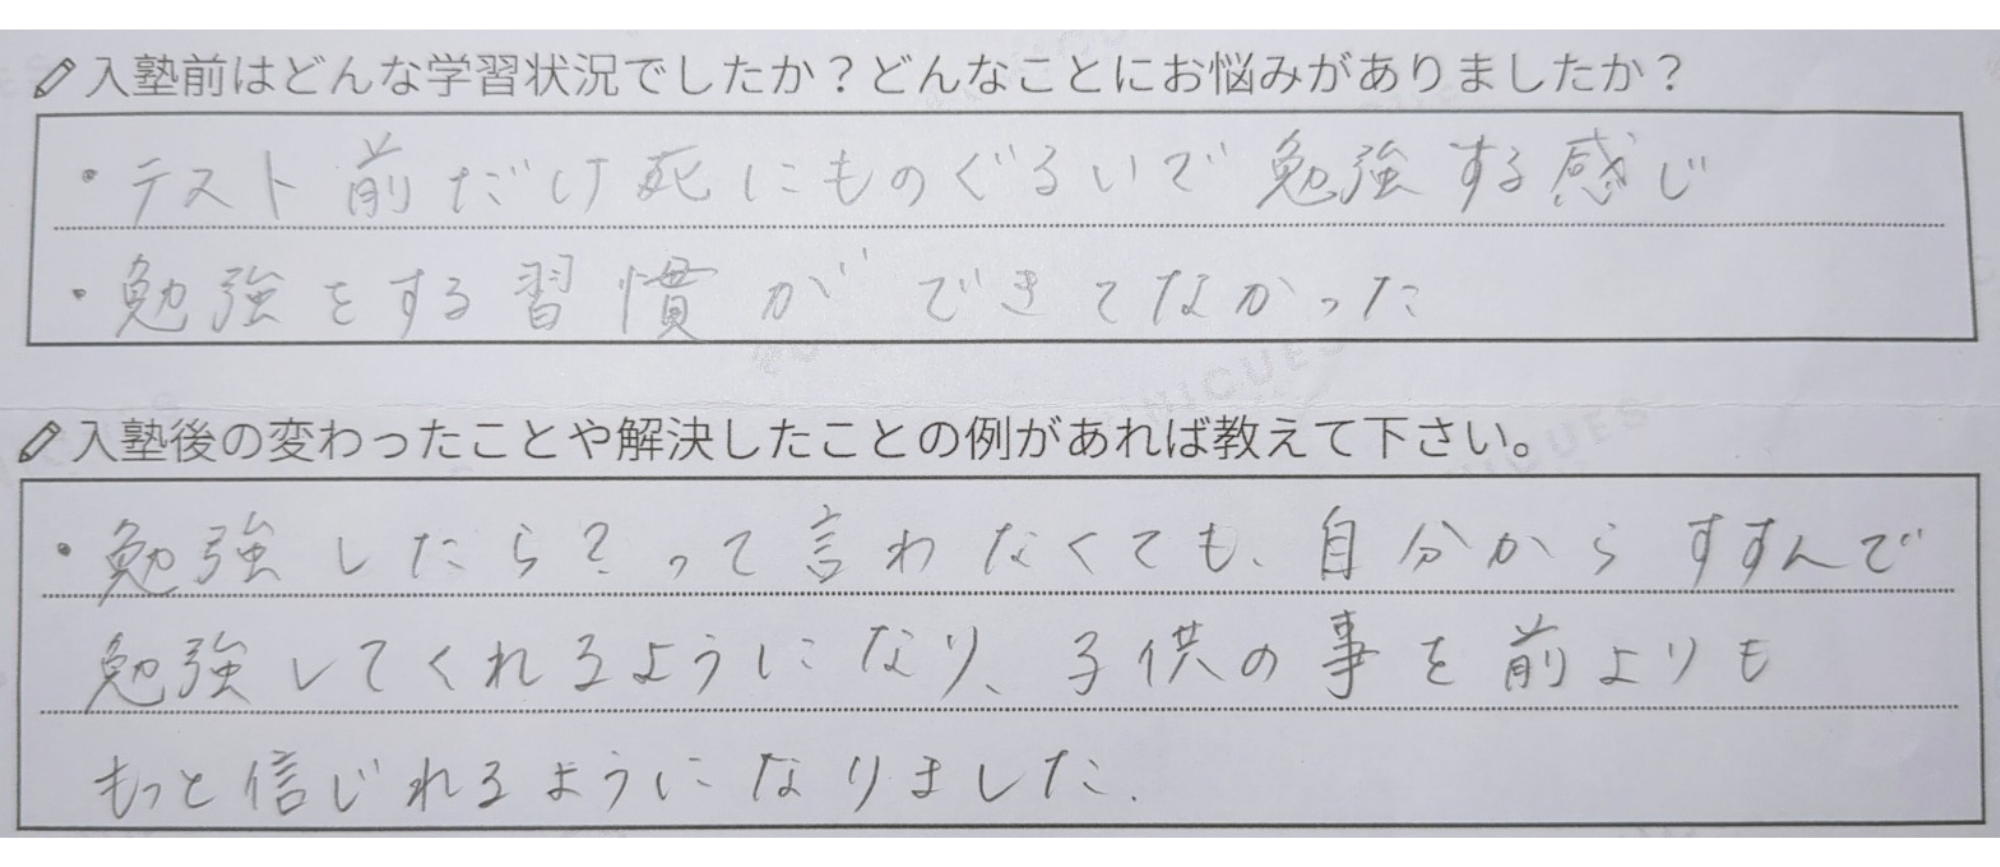 入塾前はどんな学習状況でしたか？どんなことにお悩みがありましたか？
・テスト前だけ死にものぐるいで勉強する感じ
・勉強をする習慣ができてなかった
入塾後の変わったことや解決したことの例があれば教えて下さい。
・勉強したら？って言わなくても、自分からすすんで
勉強してくれるようになり、子供の事を前よりも
もっと信じれるようになりました.